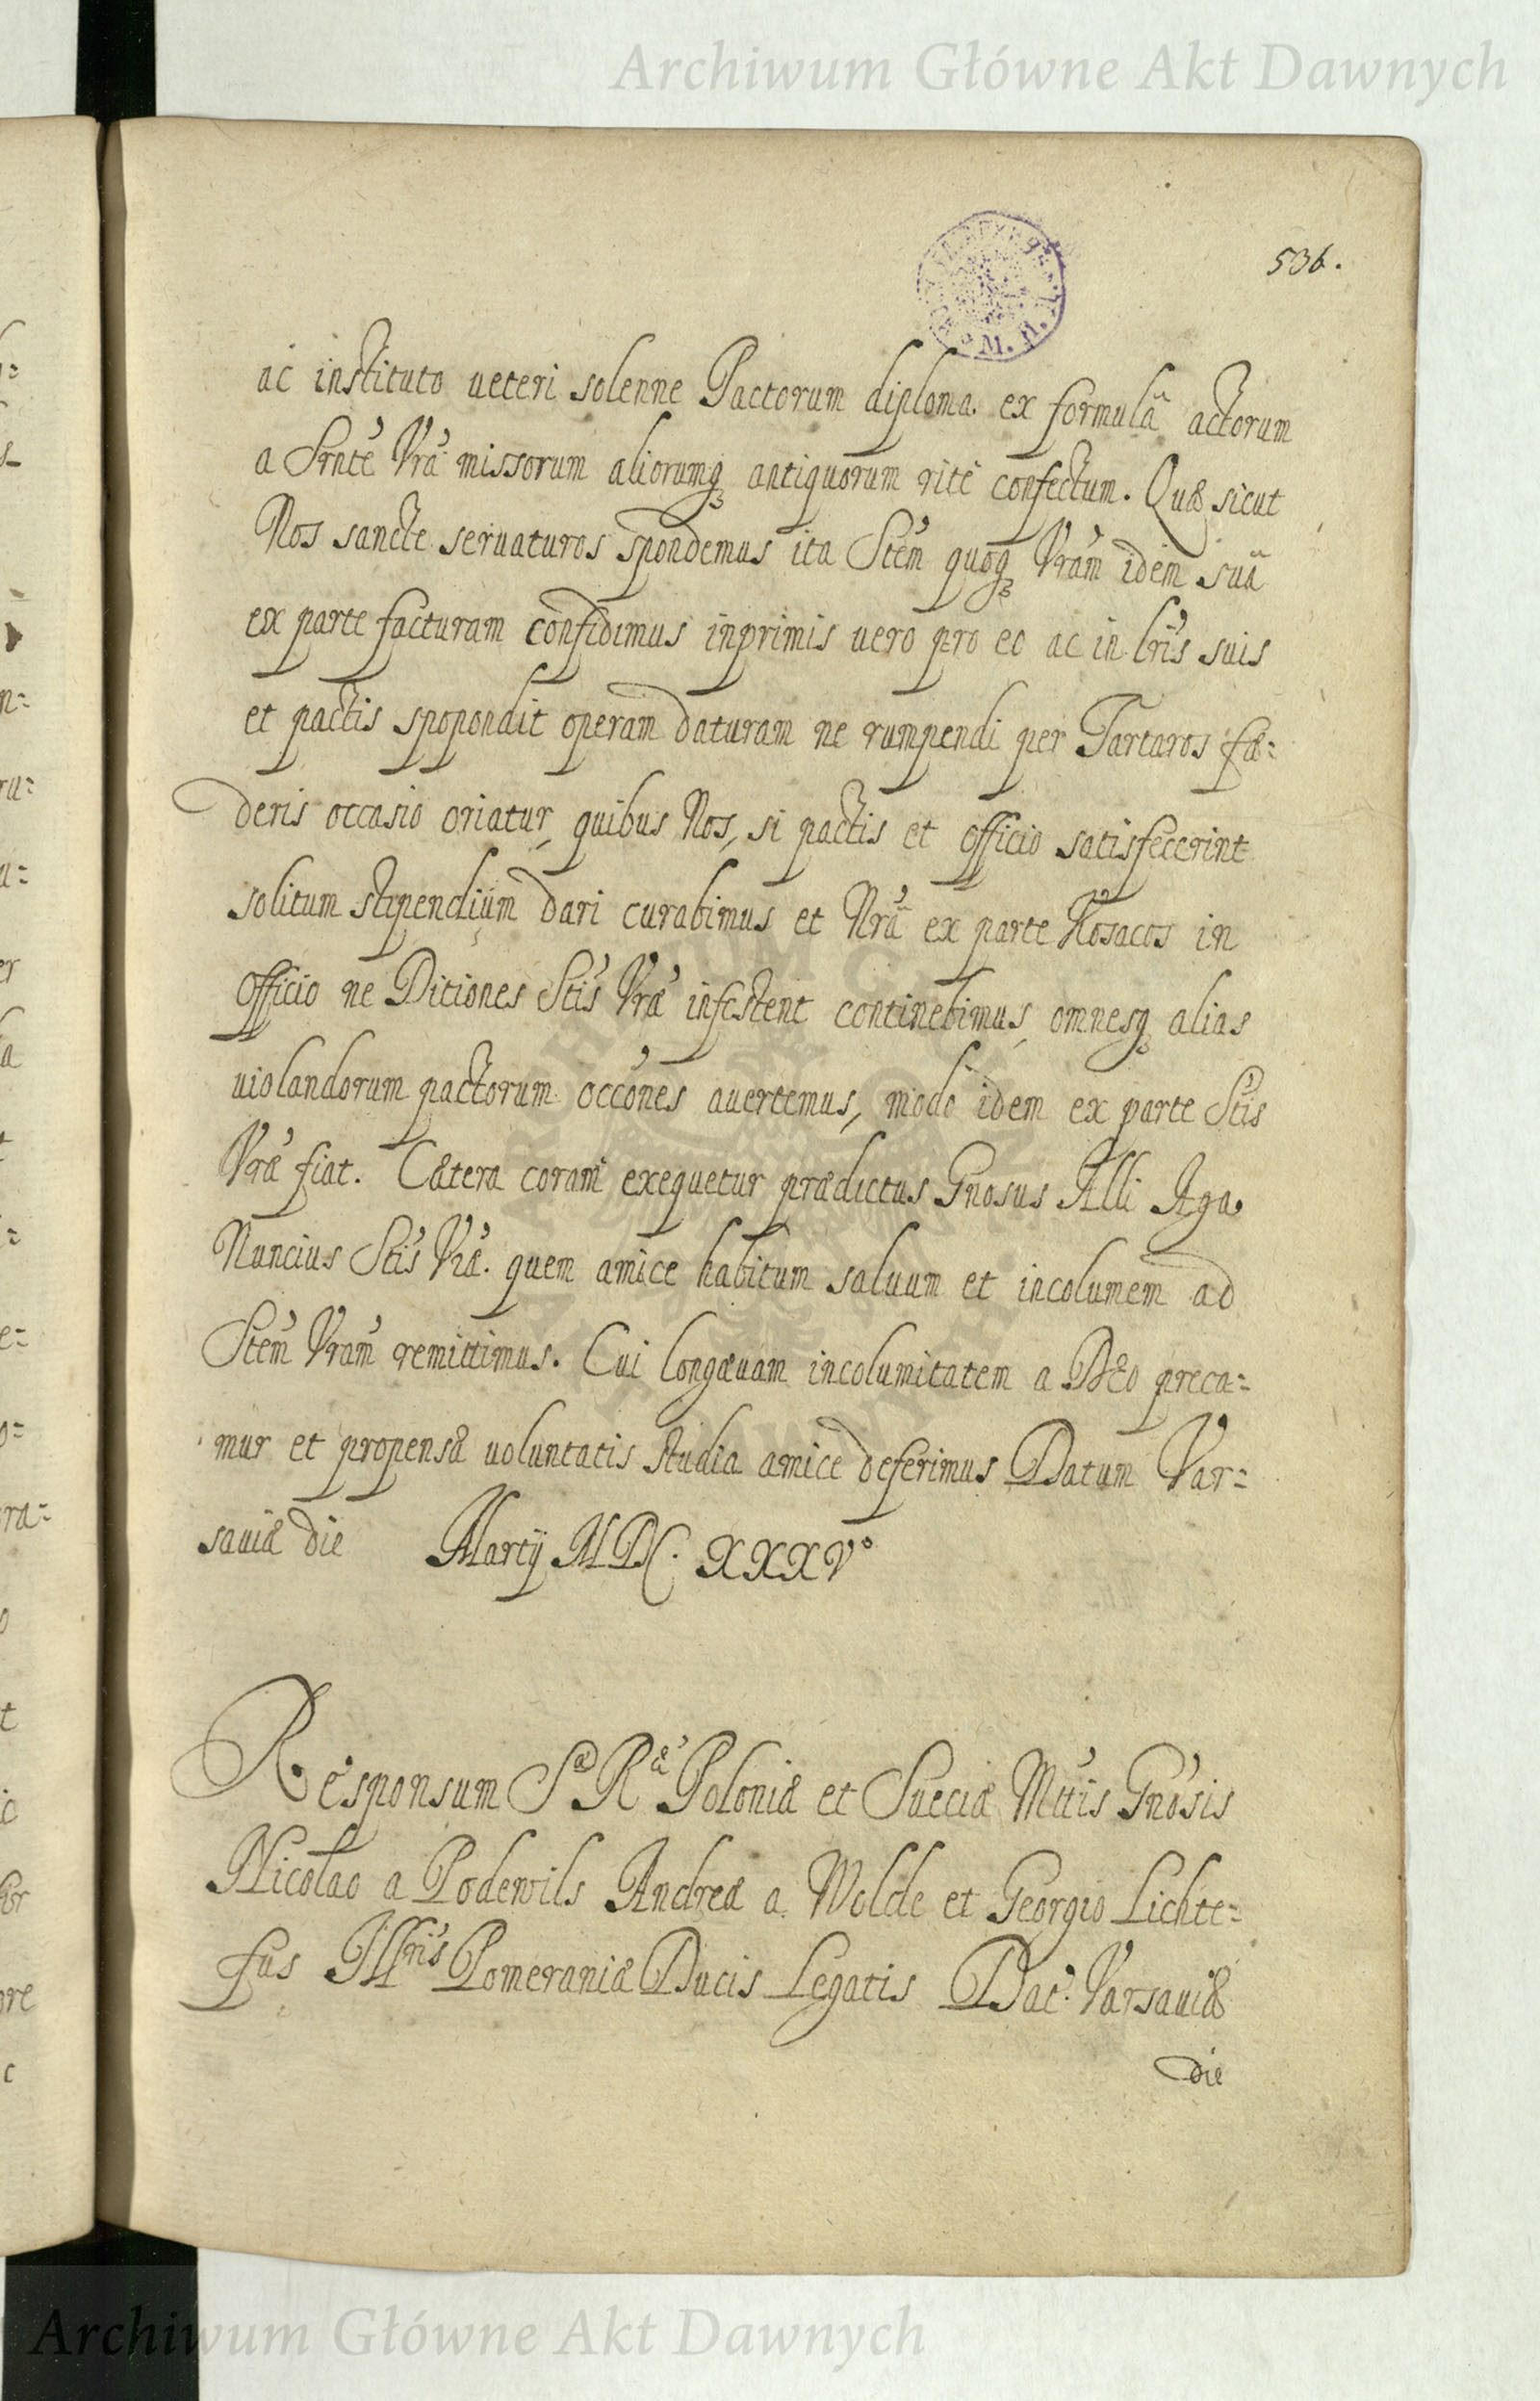 Archiwum Główne Akt Dawnych
536.
ac instituto ueteri solenne Pactorum diploma ex formulâ actorum
a Srnte Vra missorum aliorumq; antiquorum rite confectum. Quæ sicut
Nos sancte seruaturos spondemus ita Stem quoq; Vram idem suâ
ex parte facturam confidimus inprimis uero pro eo ac in lris suis
et pactis spopondit operam daturam ne rumpendi per Tartaros fæ=
deris occasio oriatur, quibus Nos, si pactis et officio satisfecerint
solitum stipendium dari curabimus et Nrâ ex parte Kosacos in
officio ne Ditiones Stis Vræ infestent continebimus, omnesq; alias
uiolandorum pactorum occones auertemus, modo idem ex parte Stis
Vræ fiat. Cætera coram exequetur prædictus Gnosus Alli Aga
Nuncius Stis Vræ. quem amice habitum saluum et incolumem ad
Stem Vram remittimus. Cui longæuam incolumitatem a DEO preca=
mur et propensæ uoluntatis studia amice deferimus Datum Var=
sauiæ die Martij MDC. XXXV°
Responsum Sæ Ræ Poloniæ et Sueciæ Mttis Gnosis
Nicolao a Podewils Andreæ a Wolde et Georgio Lichte=
fus Illris Pomeraniæ Ducis Legatis Dat. Varsauiæ
die
Archiwum Główne Akt Dawnych